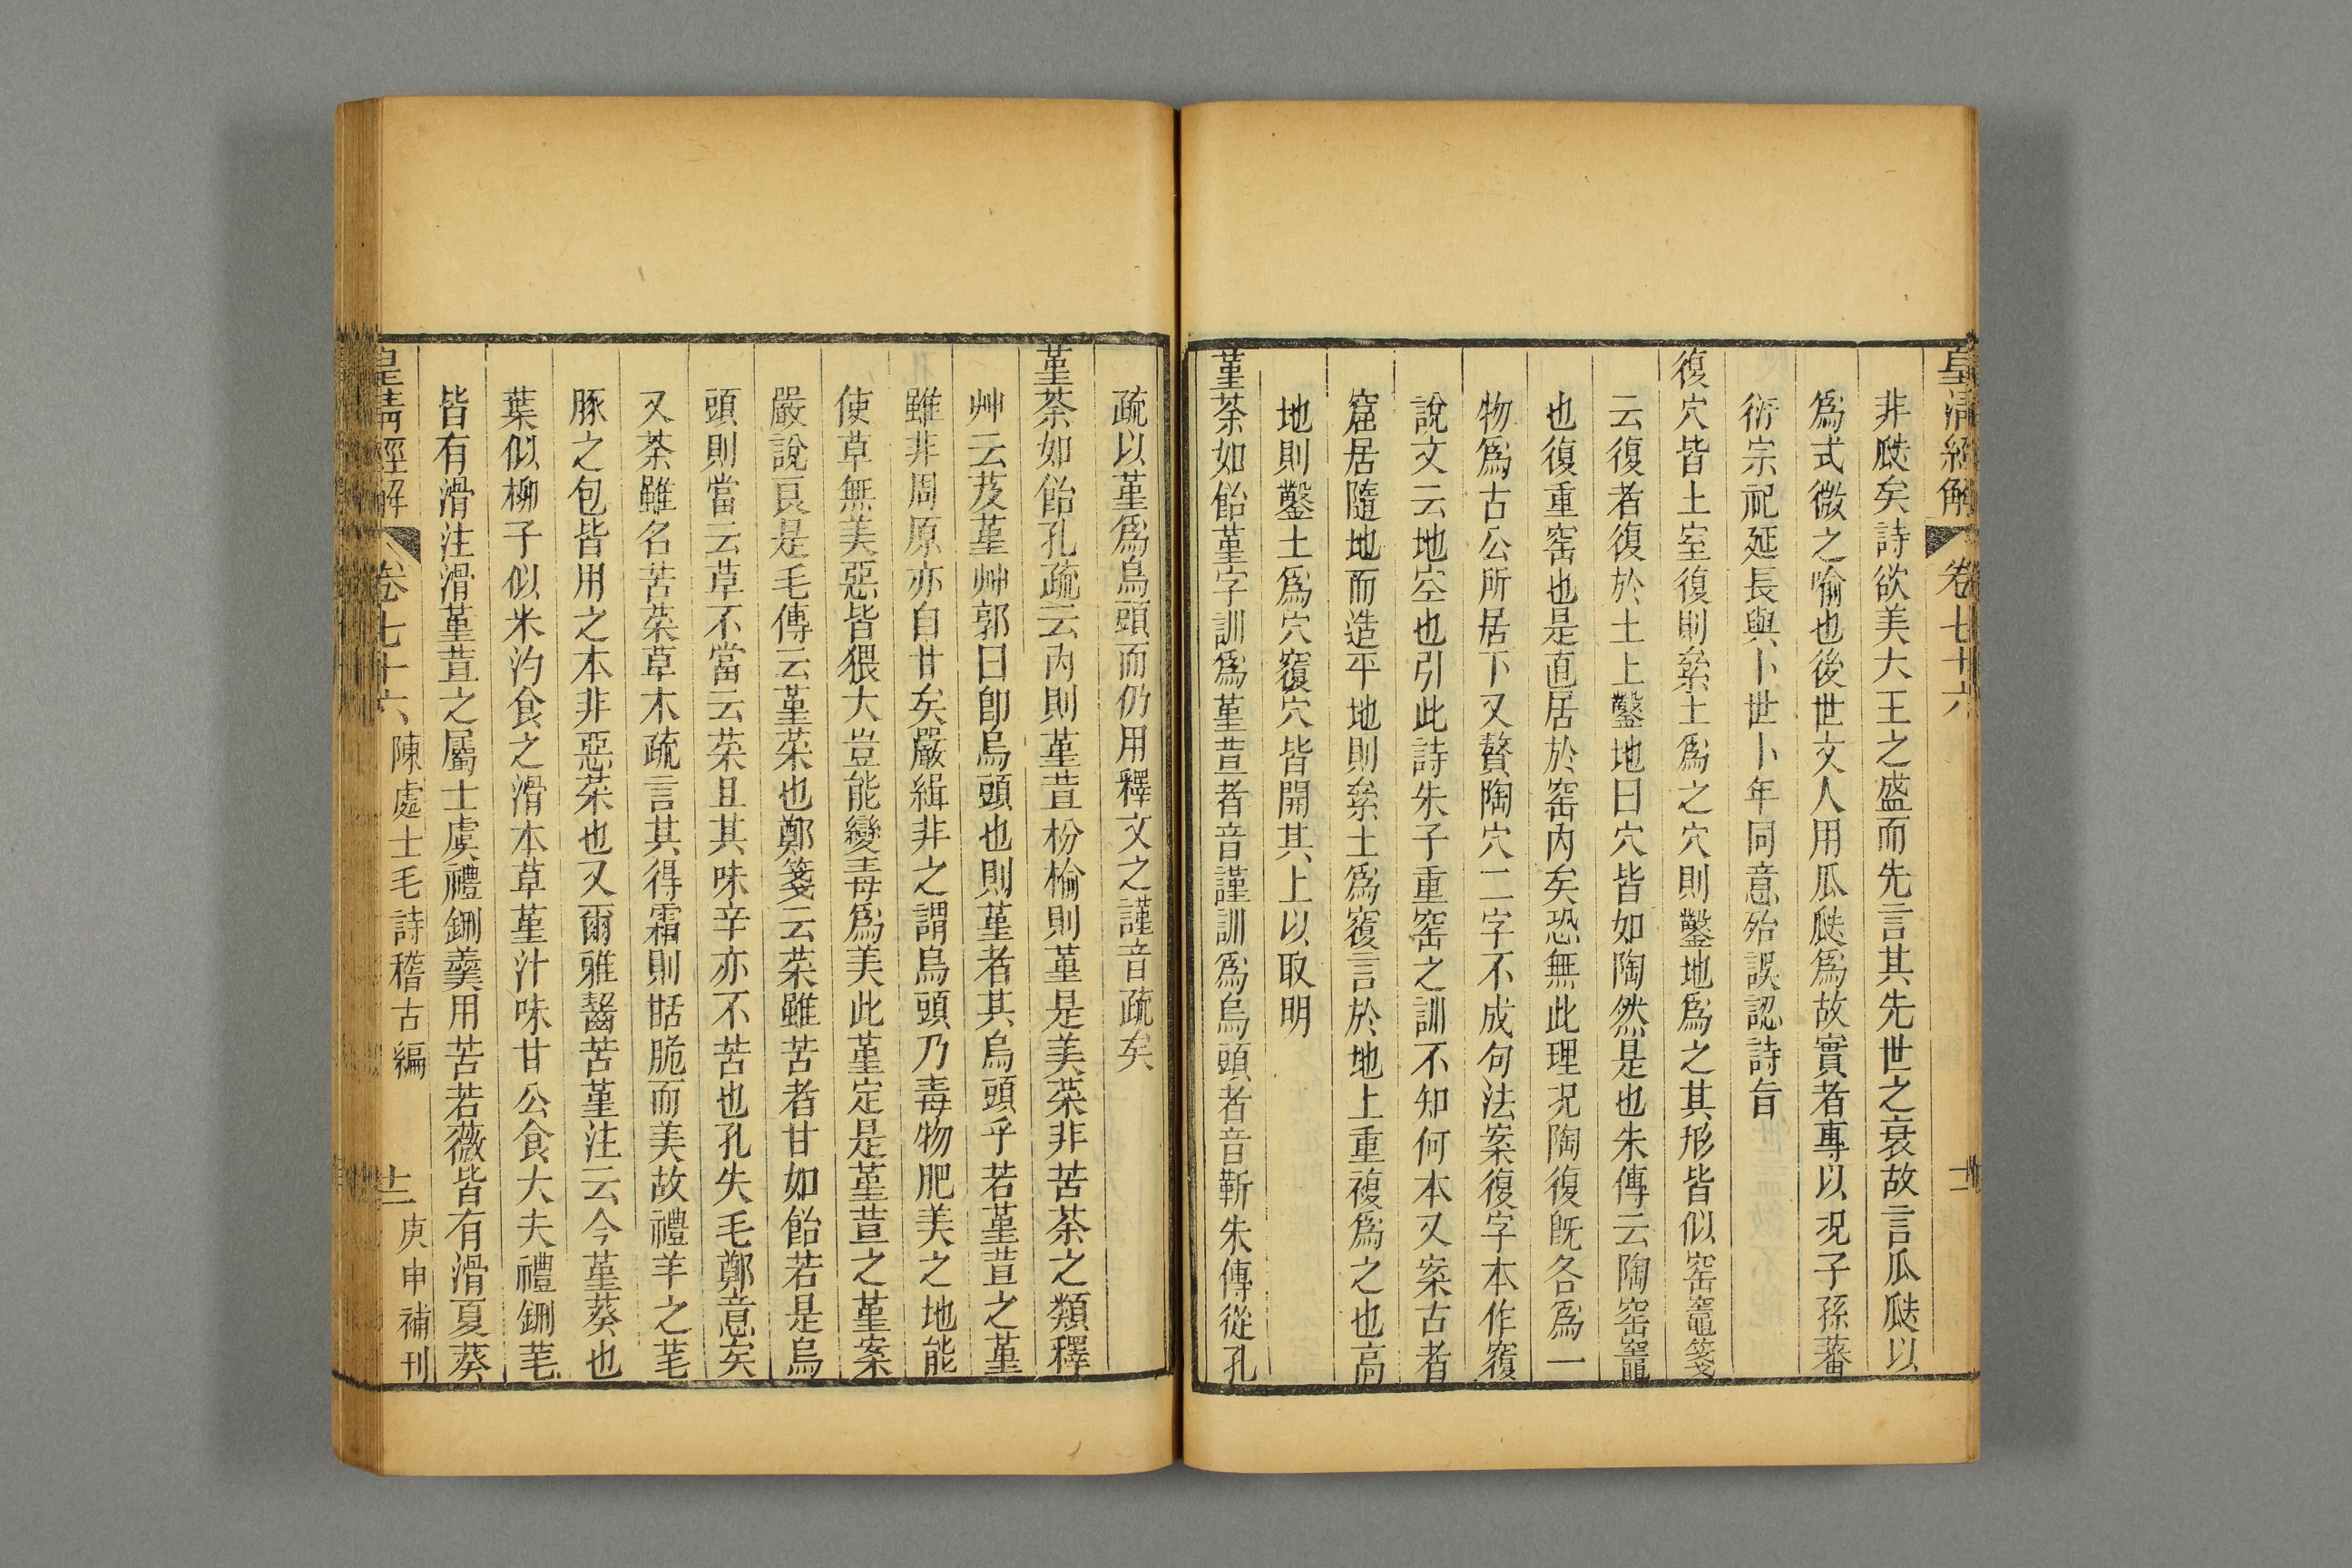 皇清經解 卷七十六
非瓞矣詩欲美大王之盛而先言其先世之衰故言瓜瓞以
爲式微之喻也後世文人用瓜瓞爲故實者專以況子孫蕃
衍宗祀延長與卜世卜年同意殆誤認詩旨
復穴皆土室復則絫土爲之穴則鑿地爲之其形皆似窑竈箋
云復者復於土上鑿地曰穴皆如陶然是也朱傳云陶窑竈
也復重窑也是直居於窑内矣恐無此理況陶復旣各爲一
物爲古公所居下又贅陶穴二字不成句法案復字本作𥨍
說文云地空也引此詩朱子重窑之訓不知何本又案古者
窟居隨地而造平地則絫土爲𥨍言於地上重複爲之也高
地則鑿土爲穴𥨍穴皆開其上以取明
堇荼如飴堇字訓爲堇荁者音謹訓爲烏頭者音靳朱傳從孔
疏以堇爲烏頭而仍用釋文之謹音疏矣
堇荼如飴孔疏云内則堇荁枌榆則堇是美菜非苦荼之類釋
艸云芨堇艸郭曰卽烏頭也則堇者其烏頭乎若堇荁之堇
雖非周原亦自甘矣嚴緝非之謂烏頭乃毒物肥美之地能
使草無美惡皆猥大豈能變毒爲美此堇定是堇荁之堇案
嚴說良是毛傳云堇菜也鄭箋云菜雖苦者甘如飴若是烏
頭則當云草不當云菜且其味辛亦不苦也孔失毛鄭意矣
又荼雖名苦菜草木疏言其得霜則甛脆而美故禮羊之芼
豚之包皆用之本非惡菜也又爾雅齧苦堇注云今堇葵也
葉似柳子似米汋食之滑本草堇汁味甘公食大夫禮鉶芼
皆有滑注滑堇荁之屬士虞禮鉶羹用苦若薇皆有滑夏葵
皇淸經解 卷七十六 陳處士毛詩稽古編 十二 庚申補刊